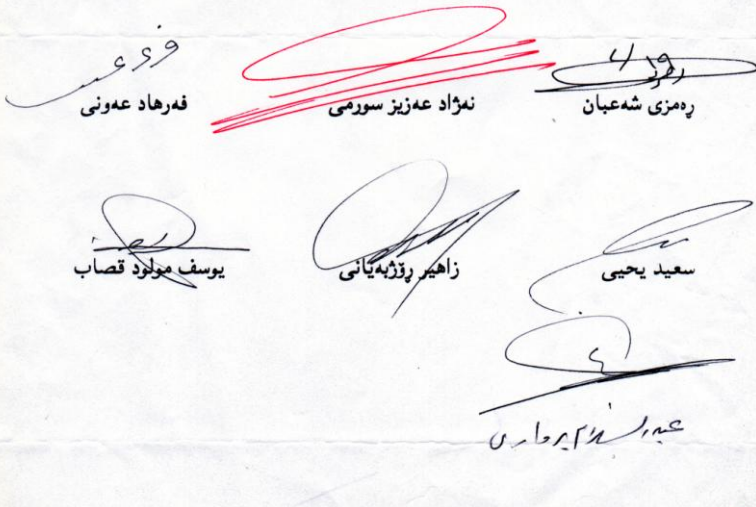 ڕەمزی شەعبان نەژاد عەزیز سورمی فەرهاد عەونی
سعید یحیی زاهیر ڕۆژبەیانی یوسف مولود قصاب
عبدالسلام برواری